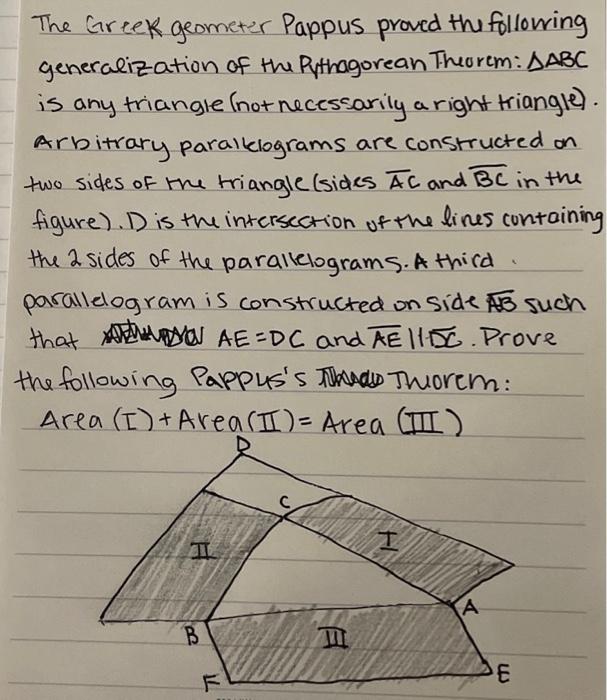 The Greek geometer Pappus proved the following
generalization of the Pythagorean Theorem: △ABC
is any triangle (not necessarily a right triangle).
Arbitrary parallelograms are constructed on
two sides of the triangle (sides A̅C̅ and B̅C̅ in the
figure). D is the intersection of the lines containing
the 2 sides of the parallelograms. A third
parallelogram is constructed on side A̅B̅ such
that AE = DC and A̅E̅ || D̅C̅. Prove
the following Pappus's Theorem:
Area (I) + Area (II) = Area (III)
D
C
I
II
A
B
III
F
E